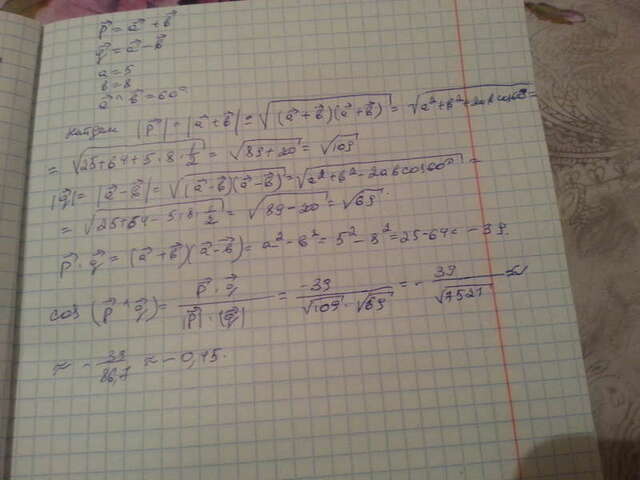 p⃗ = a⃗ + b⃗
q⃗ = a⃗ - b⃗
a = 5
b = 8
a⃗ ^ b⃗ = 60°
найдем |p⃗| = |a⃗ + b⃗| = √((a⃗ + b⃗)(a⃗ + b⃗)) = √(a² + b² + 2ab cos60°) =
= √(25 + 64 + 5 · 8 · 1/2) = √(89 + 20) = √109
|q⃗| = |a⃗ - b⃗| = √((a⃗ - b⃗)(a⃗ - b⃗)) = √(a² + b² - 2ab cos60°) =
= √(25 + 64 - 5 · 8 · 1/2) = √(89 - 20) = √69.
p⃗ · q⃗ = (a⃗ + b⃗)(a⃗ - b⃗) = a² - b² = 5² - 8² = 25 - 64 = -39.
cos (p⃗ ^ q⃗) = p⃗ · q⃗ / |p⃗| · |q⃗| = -39 / √109 · √69 = - 39 / √7521 ≈
≈ - 39 / 86,7 ≈ - 0,45.